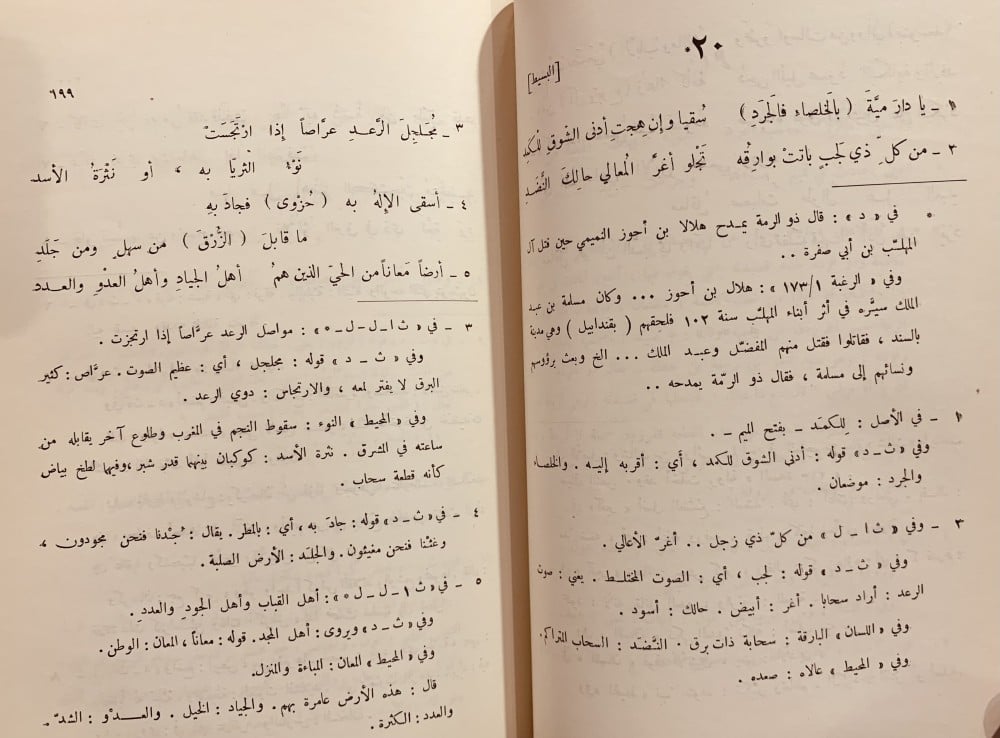 ٠٢٠
[البسيط]
١ ـ يا دارَ ميَّةَ ( بالخلصاء فالجَردِ ) سُقيا وإن هِجتِ أدنى الشوقِ للكمَدِ
٢ ـ من كلِّ ذي لَجبٍ باتتْ بوارِقُه تَجْلو أغرَّ المُعالي حالِكَ النَّضَدِ
• في « د » : قال ذو الرمة يمدح هلالا بن أحوز التميمي حين قتل آل
المهلّب بن أبي صفرة . .
وفي « الرغبة ١٧٣/١ » : هلال بن أحوز ... وكان مسلمة بن عبد
الملك سيّره في أثر أبناء المهلّب سنة ١٠٢ فلحقهم ( بقندابيل ) وهي مدينة
بالسند ، فقاتلوا فقتل منهم المفضّل وعبد الملك ... الخ وبعث برؤوسهم
ونسائهم إلى مسلمة ، فقال ذو الرمّة يمدحه . .
١ ـ في الأصل : لِلكمَد ـ بفتح الميم ـ .
وفي « ث ـ د » قوله : أدنى الشوق للكمد ، أي : أقربه إليه . والخلصاء
والجرد : موضعان .
٢ ـ وفي « ث ا ـ ل » من كلّ ذي زجل . . أغرّ الأعالي .
وفي « ث ـ د » قوله : لجب ، أي : الصوت المختلط . يعني : صوت
الرعد : أراد سحابا . أغر : أبيض . حالك : أسود .
وفي « اللسان » البارقة : سحابة ذات برق . النَّضَد : السحاب المتراكم.
وفي « المحيط » عالاه : صعده .
٦٩٩
٣ ـ مُجَلجِلَ الرَّعدِ عرَّاصاً إذا ارتجَسَتْ
نَوْءُ الثريّا به ، أو نَثْرَةُ الأسد
٤ ـ أسقى الإلهُ به ( حُزْوى ) فجادَ بهِ
ما قابلَ ( الزُّرْقَ ) من سهلٍ ومن جَلَدِ
٥ ـ أرضاً مَعاناً من الحيّ الذين همُ أهلُ الجيادِ وأهلُ العدْوِ والعدد
٣ ـ في « ث ا ـ ل ـ ل ه » : مواصل الرعد عرّاصاً إذا ارتجزت .
وفي « ث ـ د » قوله : مجلجل ، أي : عظيم الصوت . عرّاص : كثير
البرق لا يفتر لمعه ، والارتجاس : دوي الرعد .
وفي « المحيط » النوء : سقوط النجم في المغرب وطلوع آخر يقابله من
ساعته في المشرق . نثرة الأسد : كوكبان بينهما قدر شبر ، وفيها لطخ بياض
كأنه قطعة سحاب .
٤ ـ في « ث ـ د » قوله : جادَ به ، أي : بالمطر . يقال : جُدْنا فنحن مجودون ،
وغثنا فنحن مغيثون . والجلَد : الأرض الصلبة .
٥ ـ في « ث ا ـ ل ـ ل ه » : أهل القباب وأهل الجودِ والعدد.
وفي « ث ـ د » ويروى : أهل المجد. قوله : معاناً ، المعان : الوطن.
وفي « المحيط » المعان : المباءة والمنزل.
قال : هذه الأرض عامرة بهم . والجياد : الخيل . والعدْو : الشدّ ـ
والعدد : الكثرة .